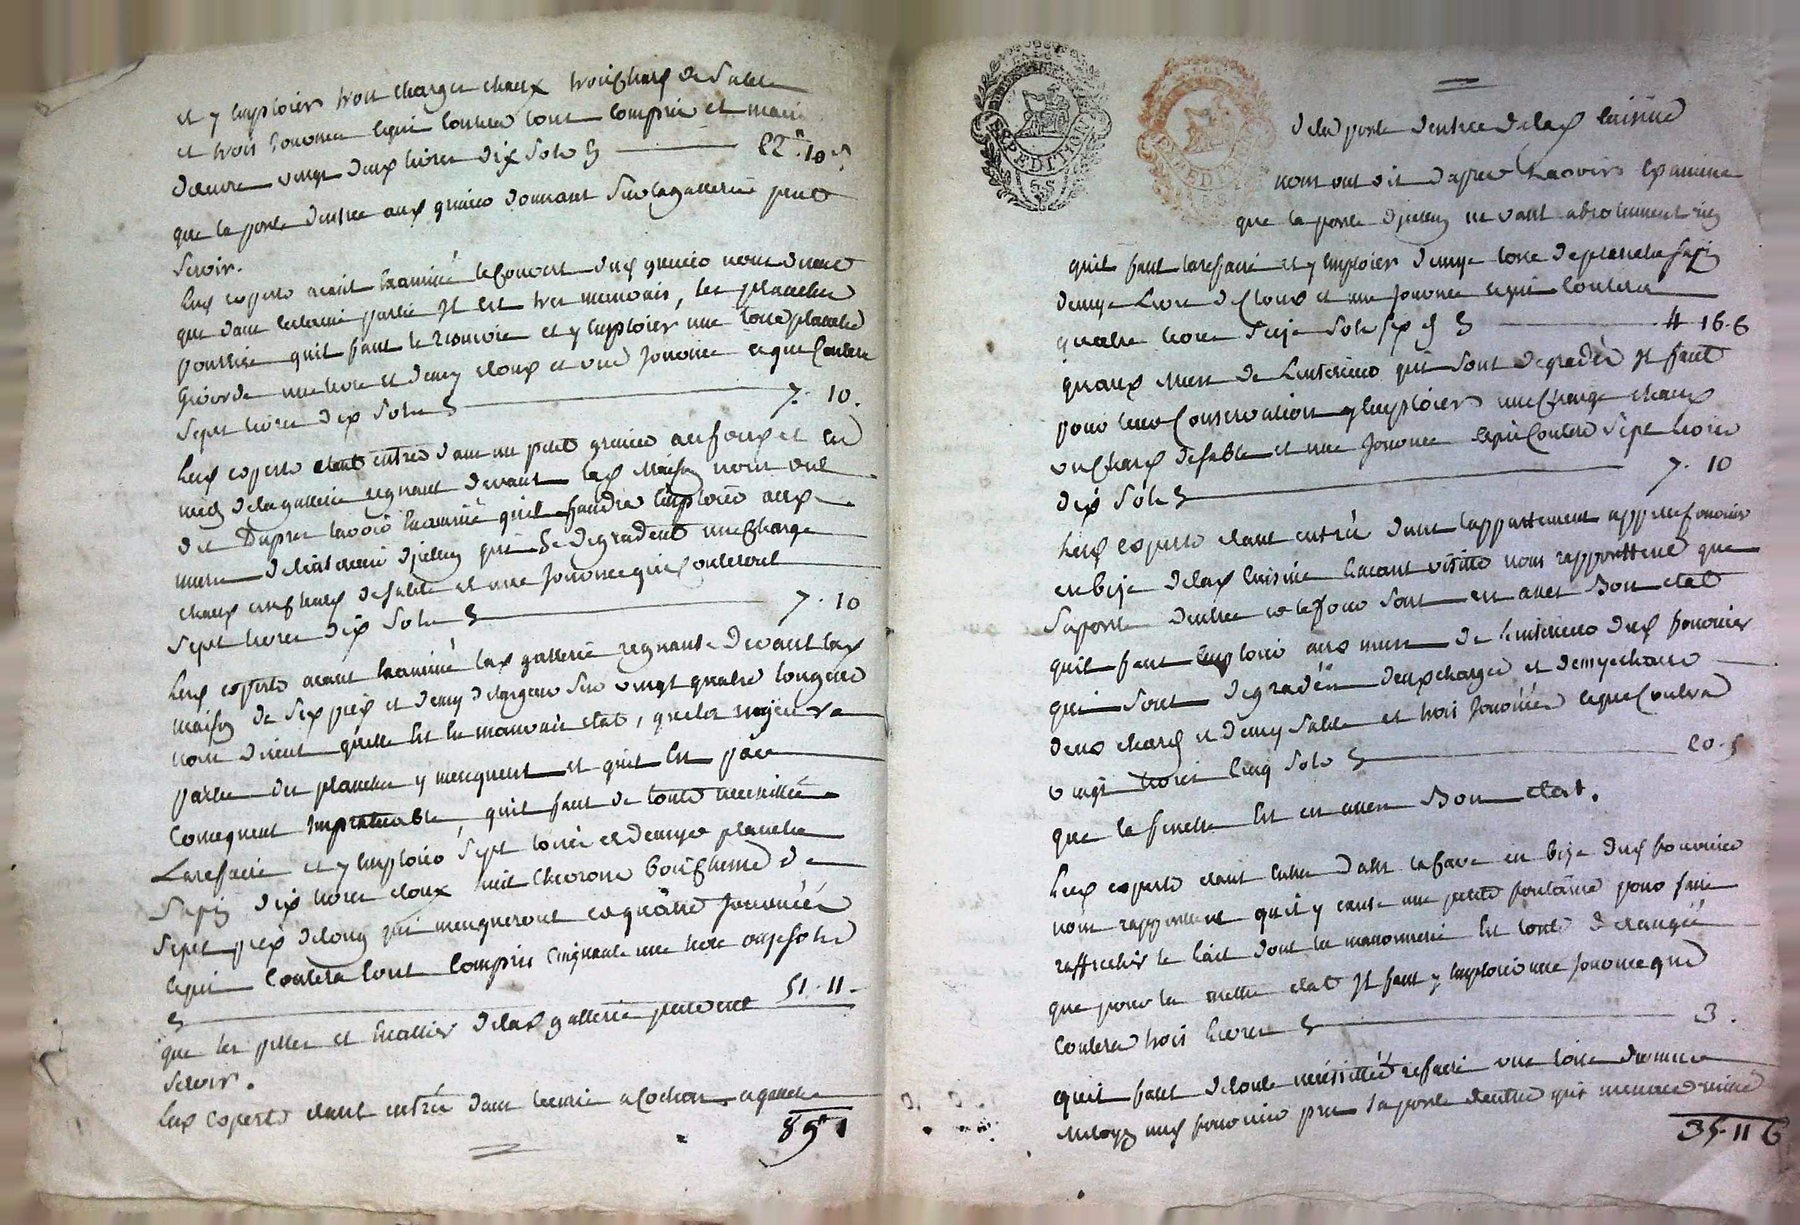 et y employer trois charges chaux trois chars de sable
et trois journées ce qui coutera tout compris et main
d'œuvre vingt deux livres dix sols 22 " 10 s
que la porte d'entrée aux greniers donnant sur la gallerie peut
servir.
les experts ayant examiné le couvert du grenier nous disent
que dans certaine partie il est très mauvais, les planches
pourries qu'il faut le et y employer une toise planches
une livre et demy cloux et une journée ce qui coutera
sept livres dix sols 7. 10.
les experts étant entrés dans un petit grenier au et en
de la gallerie regnant devant la maison nous ont
dit D'apres l'avoir examiné qu'il faudra employer aux
murs de l'interieur qui se degradent une charge
chaux un char de sable et une journée qui couteront
sept livres dix sols 7. 10
les experts ayant examiné la gallerie regnante devant la
maison de six pieds et demy de largeur sur vingt quatre longueur
nous disent qu'elle est en mauvais état, que la majeure
partie des planches y manquent et qu'il est par
consequent impraticable, qu'il faut de toute necessité
la refaire et y employer sept toises et demye planches
sapin dix livres cloux huit chevrons bois chesne de
sept pieds de long qui manqueront et quatre journées
ce qui coutera tout compris cinquante une livre onze sols
51. 11 -
que les pilliers et escalliers de la gallerie peuvent
servir.
les experts étant entrés dans l'ecurie à cochon
85 " 1
EXPEDITION
S.S
EXPEDITION
de la porte d'entrée de la cuisine
nous ont dit d'apres l'avoir examiné
que la porte ne vaut absolument rien
qu'il faut la refaire et y employer demye toise de planches sapin
demye livre de cloux et une journée ce qui coutera
quatre livres seize sols six d 4 16. 6
qu'aux murs de l'interieur qui sont degradés il faut
pour leur conservation y employer une charge chaux
un char de sable et une journée ce qui coutera sept livres
dix sols 7. 10
les experts étant entrés dans l'appartement appellé fournier
en bize de la cuisine l'ayant visitté nous rapporttent que
sa porte d'entrée et le four sont en assez bon état
qu'il faut employer aux murs de l'interieur du fournier
qui sont degradés deux charges et demye chaux
deux chars et demy sable et trois journées ce qui coutera
vingt livres cinq sols 20. 5
que la fenetre est en assez bon état.
les experts étant entrés dans la cave en bize du fournier
nous rapportent qu'il y existe une petite fontaine pour faire
raffrechir le lait dont la maçonnerie est toute derangée
que pour la mettre état il faut y employer une journée qui
coutera trois livres 3.
qu'il faut de toute necessitté refaire une toise de mur
au fournier pres sa porte d'entrée qui menace ruine
35. 11 6